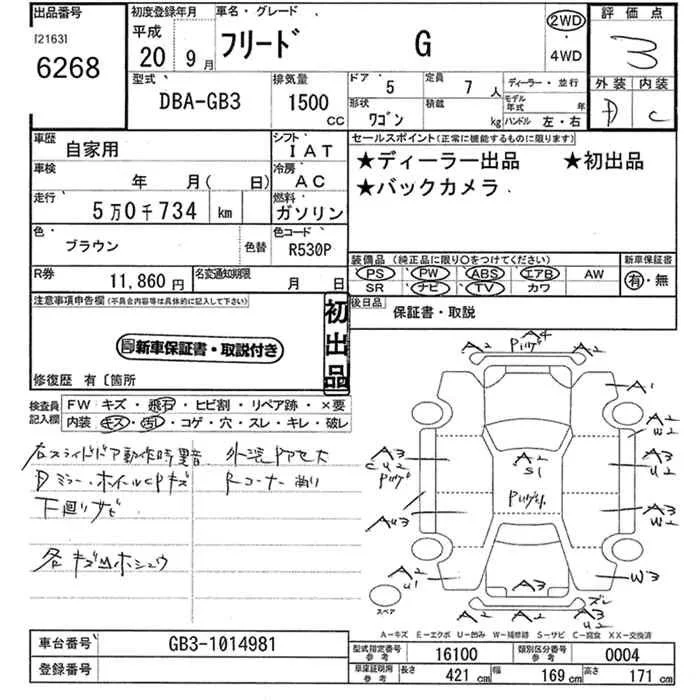 出品番号
[2163]
6268
初度登録年月
平成
20 9月
車名・グレード
フリード G
2WD
・
4WD
評価点
3
外装 内装
D C
型式
DBA-GB3
排気量
1500 CC
ドア 5
定員 7 人
形状 ワゴン
積載 kg
ディーラー・並行
モデル年式 年
ハンドル 左・右
車歴
自家用
シフト
IAT
車検
年 月( 日)
冷房
AC
走行
5万0千734 km
燃料
ガソリン
色
ブラウン
色替
色コード
R530P
R券
11,860円
名変通知期限
月 日
セールスポイント(正常に機能するものに限ります)
★ディーラー出品 ★初出品
★バックカメラ
装備品 (純正品に限り○をつけてください)
PS PW ABS エアB AW
SR ナビ TV カワ
新車保証書
有・無
後日品
保証書・取説
注意事項申告欄(不具合内容等は具体的に記入して下さい)
新車保証書・取説付き
初出品
修復歴 有〔箇所
検査員記入欄
FW キズ・飛石・ヒビ割・リペア跡・×要
内装 キズ・汚し・コゲ・穴・スレ・キレ・破レ
右スライドドア動作時異音
Dミラー・ホイールCPキズ
下廻りサビ
各キズ凹ホシュウ
Rコーナー
A2 A4 A2
A1
A2
W2
A3
U2
A3
C U2
A2
S1
A3
W2
AU3
A2
U1
A3
W3
A2 A2
スペア
A-キズ E-エクボ U-凹み W-補修跡 S-サビ C-腐食 XX-交換済
車台番号
GB3-1014981
登録番号
型式指定番号 参考
16100
類別区分番号 参考
0004
車庫証明用 参考
長さ 421 cm
幅 169 cm
高さ 171 cm